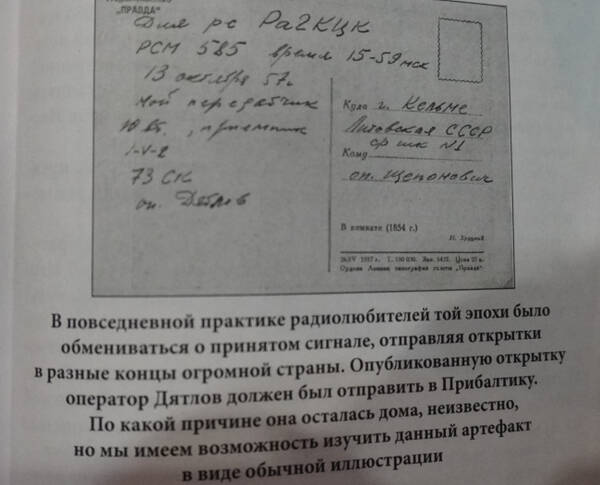 "ПРАВДА"
Для рс Ра2КЦК
РСМ 585 время 15-59 мск
13 октября 57г.
Мой передатчик
10 вт., приемник
1-V-2
73 СК
оп. Дятлов
Куда г. Кельме
Литовская ССР
ср шк №1
Кому
оп. Щепонович
В комнате (1854 г.)
26/IV 1957 г. Т. Зак. 1422. Цена 25 к.
Ордена Ленина типография газеты „Правда“.
В повседневной практике радиолюбителей той эпохи было
обмениваться о принятом сигнале, отправляя открытки
в разные концы огромной страны. Опубликованную открытку
оператор Дятлов должен был отправить в Прибалтику.
По какой причине она осталась дома, неизвестно,
но мы имеем возможность изучить данный артефакт
в виде обычной иллюстрации